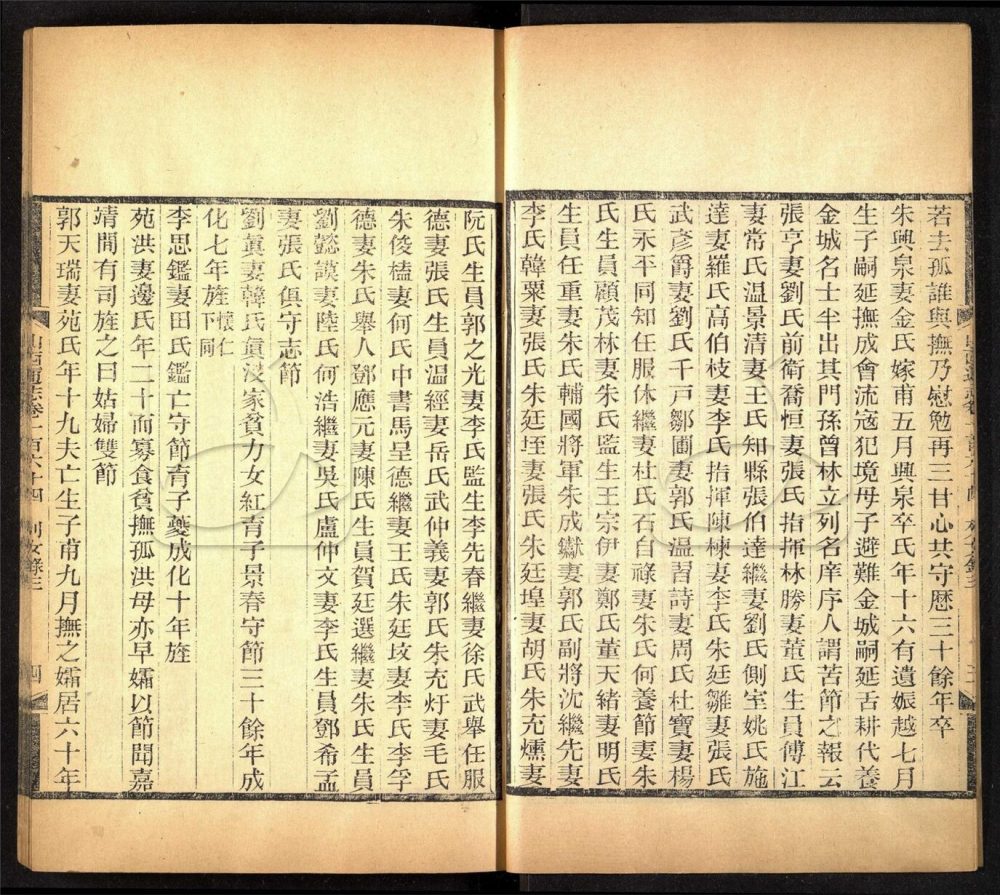 若去孤誰與撫乃慰勉再三甘心共守歷三十餘年卒
朱興泉妻金氏嫁甫五月興泉卒氏年十六有遺娠越七月
生子嗣延撫成會流寇犯境母子避難金城嗣延舌耕代養
金城名士半出其門孫曾林立列名庠序人謂苦節之報云
張亨妻劉氏前衛喬恒妻張氏指揮林勝妻董氏生員傅江
妻常氏温景清妻王氏知縣張伯達繼妻劉氏側室姚氏施
達妻羅氏高伯枝妻李氏指揮陳棟妻李氏朱廷雛妻張氏
武彥爵妻劉氏千戸鄒圃妻郭氏温習詩妻周氏杜寶妻楊
氏永平同知任服休繼妻杜氏石自祿妻朱氏何養節妻朱
氏生員顧茂林妻朱氏監生王宗伊妻鄭氏董天緒妻明氏
生員任重妻朱氏輔國將軍朱成鐬妻郭氏副將沈繼先妻
李氏韓粟妻張氏朱廷垤妻張氏朱廷堭妻胡氏朱充燻妻
阮氏生員郭之光妻李氏監生李先春繼妻徐氏武舉任服
德妻張氏生員温經妻岳氏武仲義妻郭氏朱充㶥妻毛氏
朱俊榼妻何氏中書馬呈德繼妻王氏朱廷㘿妻李氏李孚
德妻朱氏舉人鄧應元妻陳氏生員賀廷選繼妻朱氏生員
劉懿謨妻陸氏何浩繼妻吳氏盧仲文妻李氏生員鄧希孟
妻張氏俱守志節
劉眞妻韓氏眞沒家貧力女紅育子景春守節三十餘年成
化七年旌懷仁下同
李思鑑妻田氏鑑亡守節育子夔成化十年旌
苑洪妻邊氏年二十而寡食貧撫孤洪母亦早孀以節聞嘉
靖間有司旌之曰姑婦雙節
郭天瑞妻苑氏年十九夫亡生子甫九月撫之孀居六十年
山西通志卷一百六十四 列女錄三 四